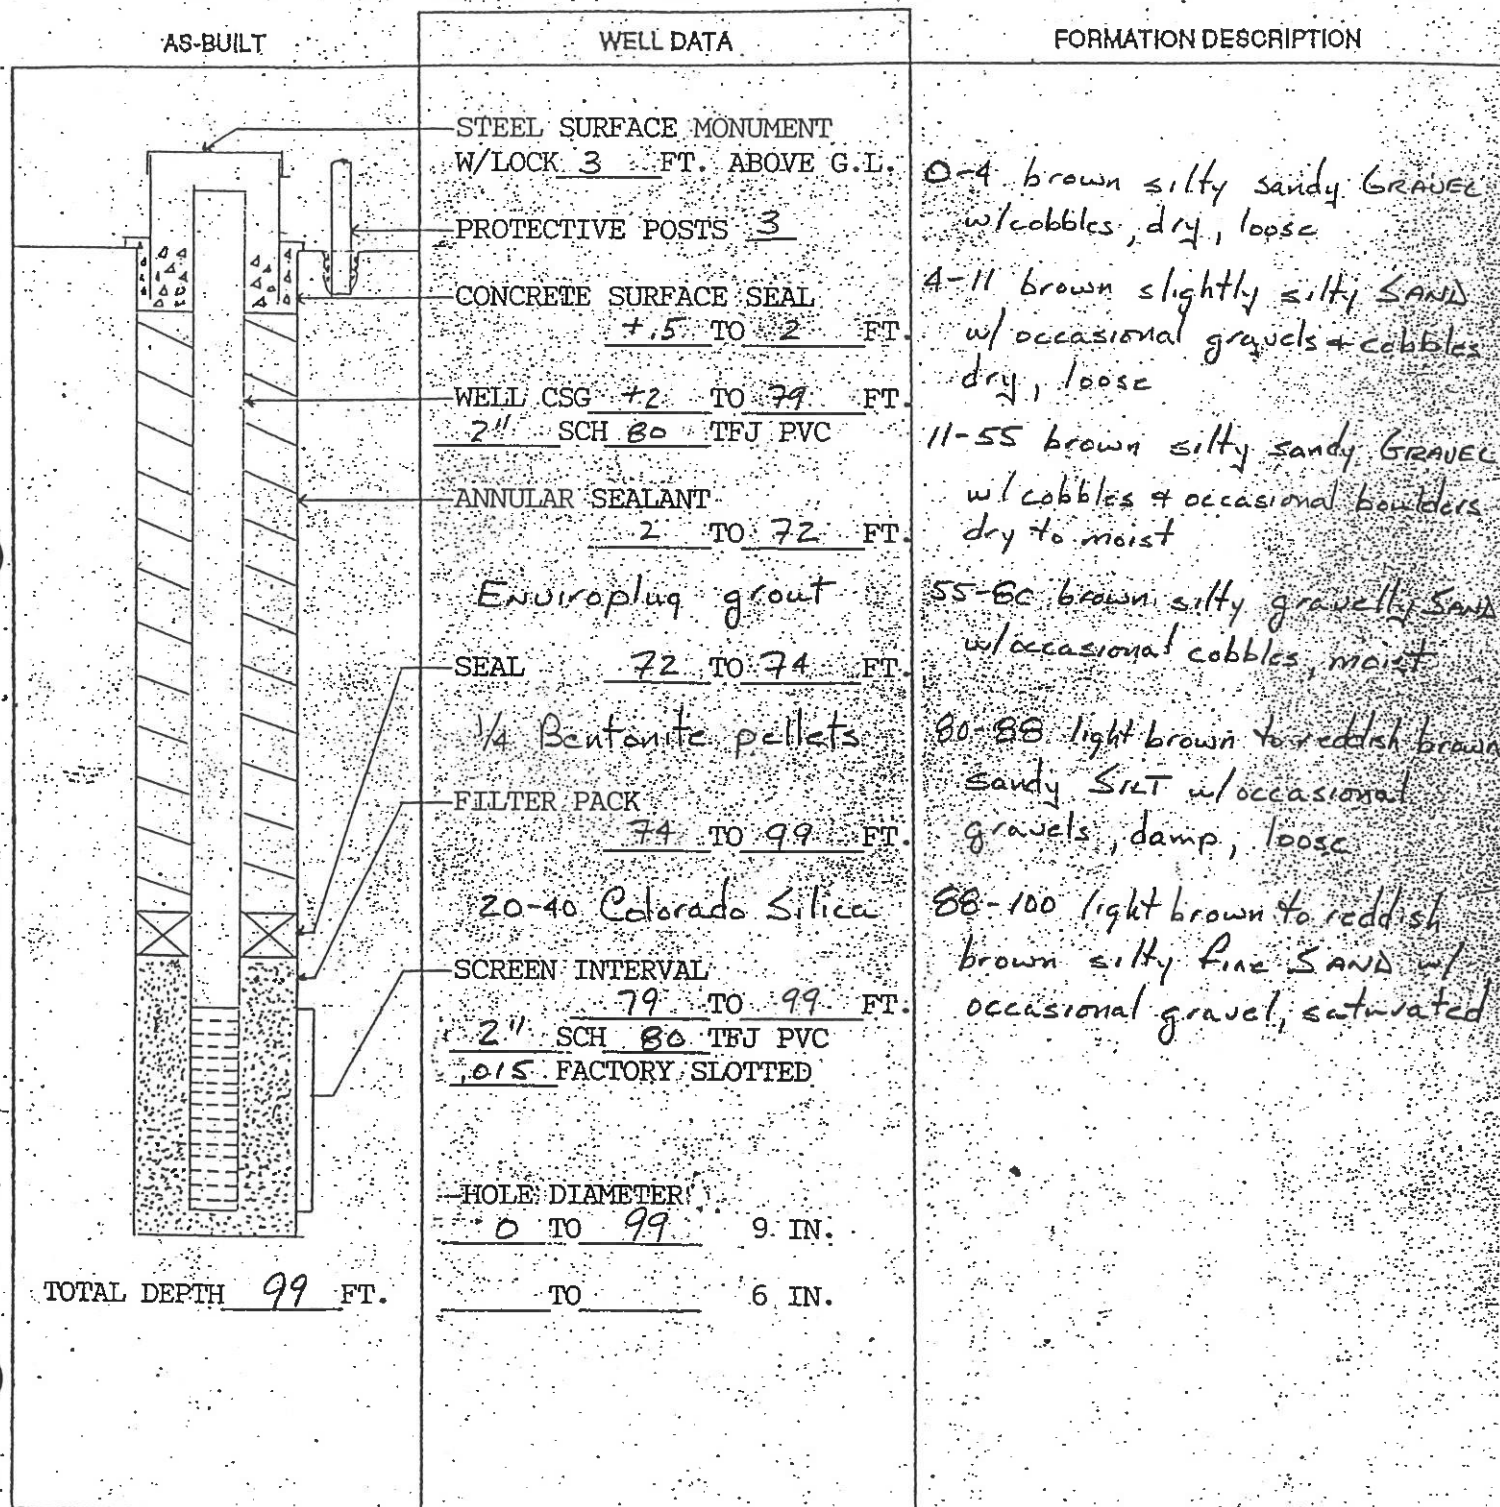 AS-BUILT
WELL DATA
FORMATION DESCRIPTION
STEEL SURFACE MONUMENT
W/LOCK 3 FT. ABOVE G.L.
PROTECTIVE POSTS 3
CONCRETE SURFACE SEAL
+.5 TO 2 FT.
WELL CSG +2 TO 79 FT.
2" SCH 80 TFJ PVC
ANNULAR SEALANT
2 TO 72 FT.
Enviroplug grout
SEAL 72 TO 74 FT.
1/4 Bentonite pellets
FILTER PACK
74 TO 99 FT.
20-40 Colorado Silica
SCREEN INTERVAL
79 TO 99 FT.
2" SCH 80 TFJ PVC
.015 FACTORY SLOTTED
HOLE DIAMETER
0 TO 99 9 IN.
TO 6 IN.
TOTAL DEPTH 99 FT.
0-4 brown silty sandy GRAVEL
w/cobbles, dry, loose
4-11 brown slightly silty SAND
w/ occasional gravels + cobbles
dry, loose
11-55 brown silty sandy GRAVEL
w/cobbles & occasional boulders
dry to moist
55-80 brown silty gravelly SAND
w/occasional cobbles, moist
80-88 light brown to reddish brown
sandy SILT w/occasional
gravels, damp, loose
88-100 light brown to reddish
brown silty fine SAND w/
occasional gravel, saturated